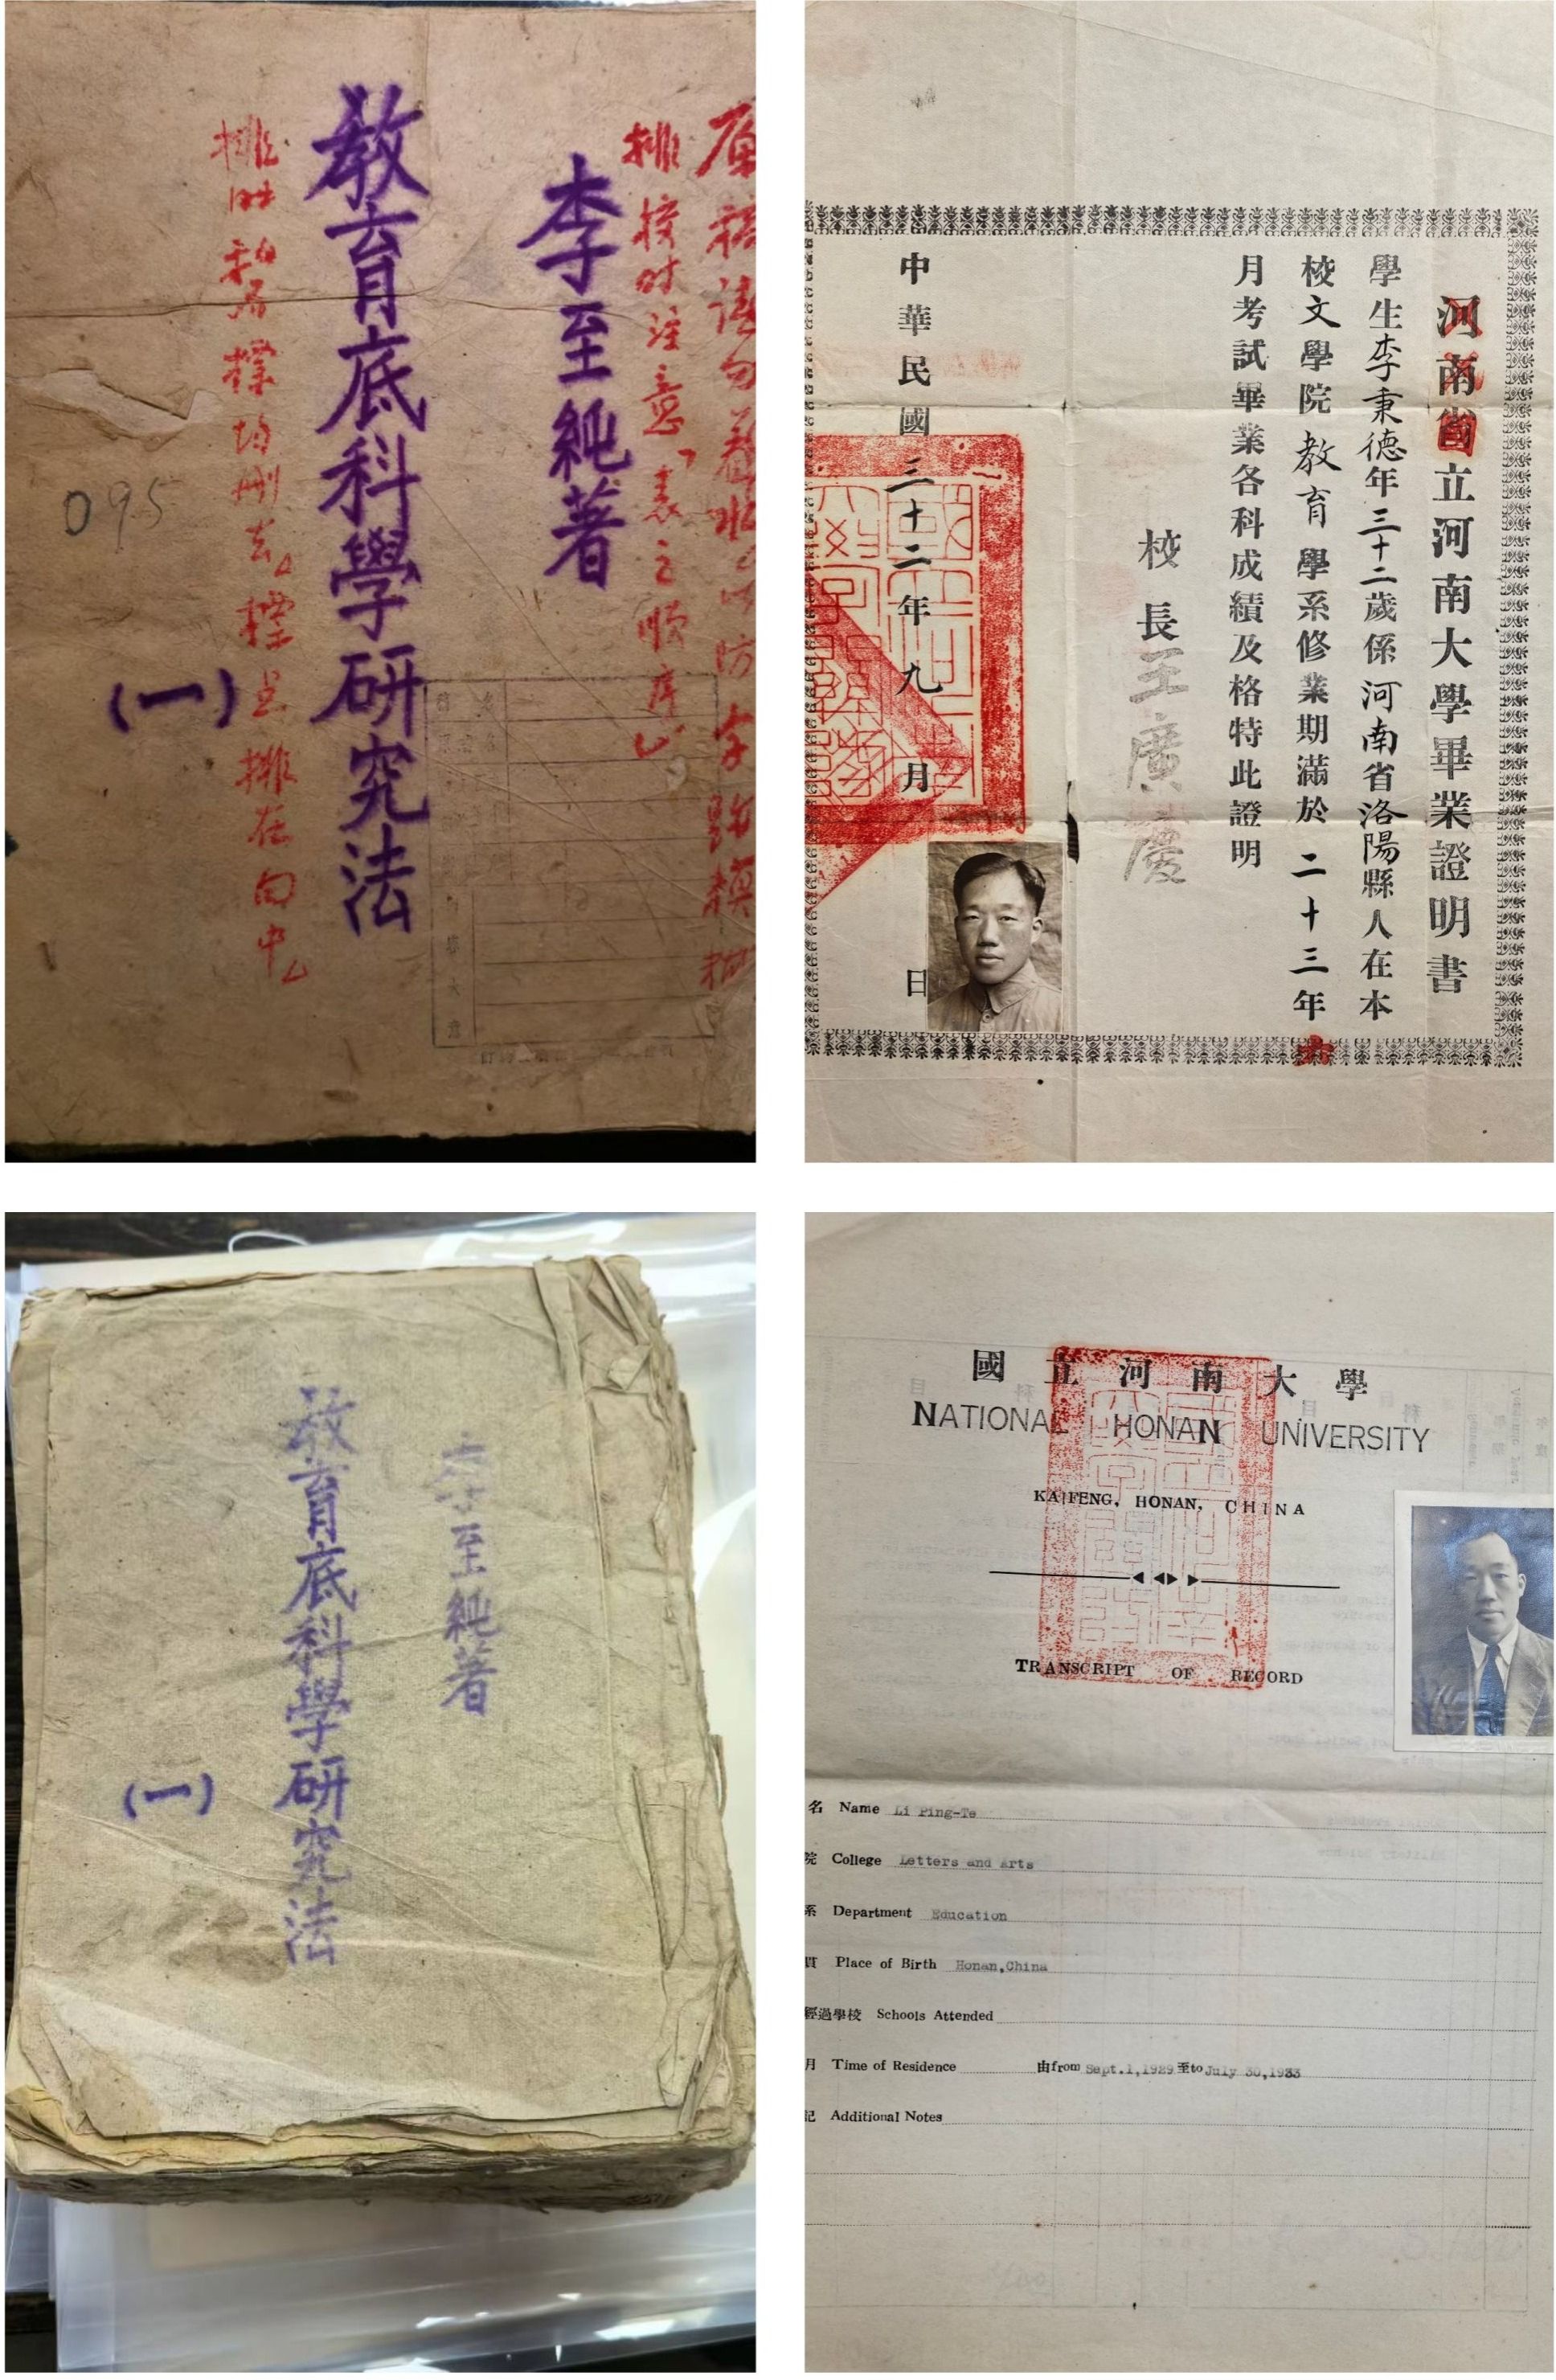 原稿請勿着水以防字跡模糊
排校時注意「表之順序」
李至純著
教育底科學研究法
(一)
095
河南省立河南大學畢業證明書
學生李秉德年三十二歲係河南省洛陽縣人在本
校文學院教育學系修業期滿於二十三年六
月考試畢業各科成績及格特此證明
校長王廣慶
中華民國三十二年九月 日
李至純著
教育底科學研究法
(一)
國立河南大學
NATIONAL HONAN UNIVERSITY
KAIFENG, HONAN, CHINA
TRANSCRIPT OF RECORD
名 Name Li Ping-Te
院 College Letters and Arts
系 Department Education
Place of Birth Honan,China
經過學校 Schools Attended
月 Time of Residence 由from Sept.1,1929 至to July 30,1933
記 Additional Notes